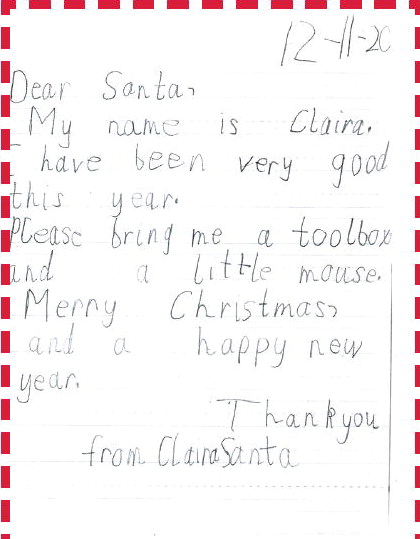 12-11-20
Dear Santa,
My name is Claira.
I have been very good
this year.
Please bring me a toolbox
and a little mouse.
Merry Christmas,
and a happy new
year.
Thank you
from ClairaSanta